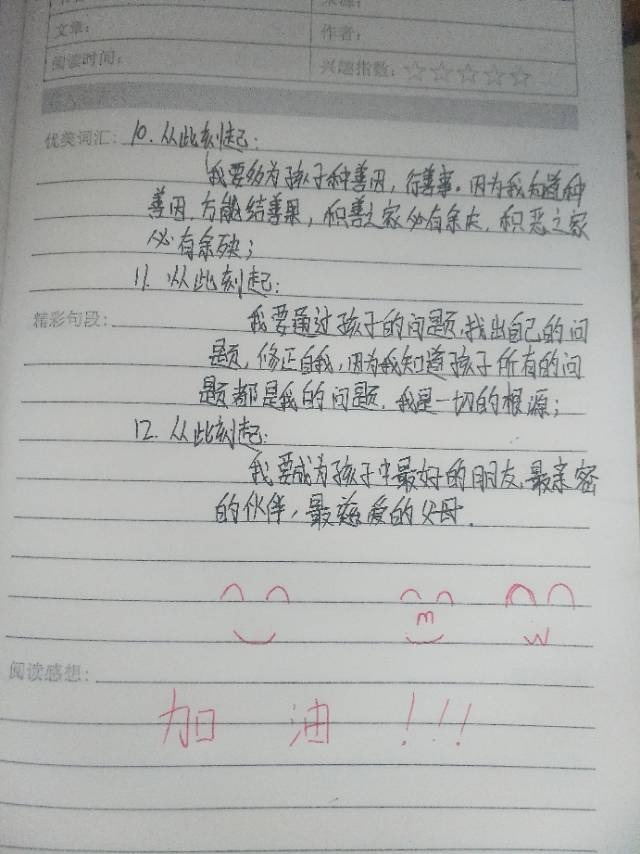 来源:
文章:
作者:
阅读时间:
兴趣指数: ☆☆☆☆☆
优美词汇: 10. 从此刻起:
我要多为孩子种善因，行善事。因为我知道种
善因，方能结善果，积善之家必有余庆，积恶之家
必有余殃；
11. 从此刻起:
精彩句段:
我要通过孩子的问题，找出自己的问
题，修正自我，因为我知道孩子所有的问
题都是我的问题，我是一切的根源；
12. 从此刻起:
我要成为孩子中最好的朋友，最亲密
的伙伴，最慈爱的父母.
阅读感想:
加油!!!